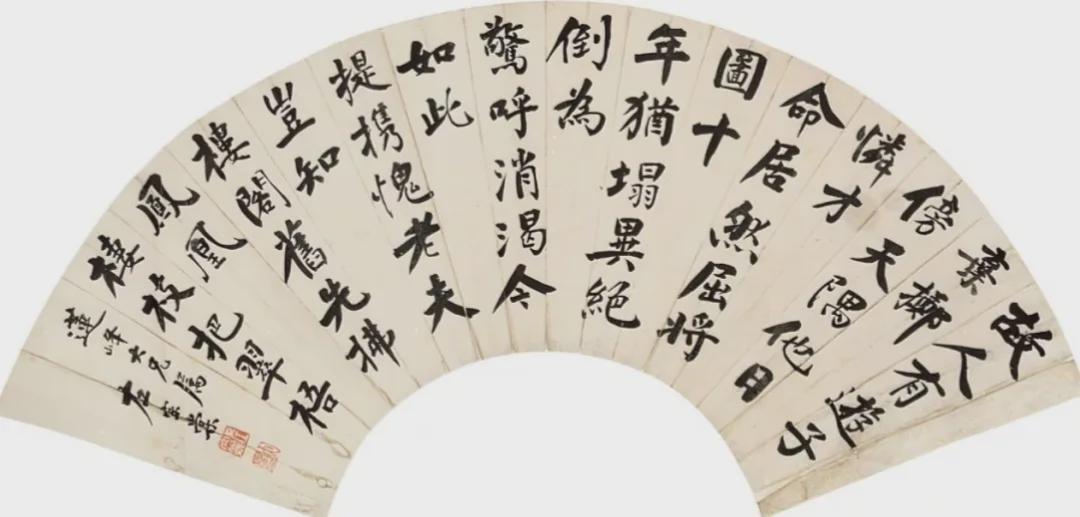 故人有遊子
棄擲
傍天隅他日
憐才
命居然屈將
圖十
年猶塌異絕
倒為
驚呼消渴今
如此
提攜愧老夫
豈知
樓閣舊先拂
鳳凰
棲枝把翠梧
蓮峰大兄屬
左宗棠